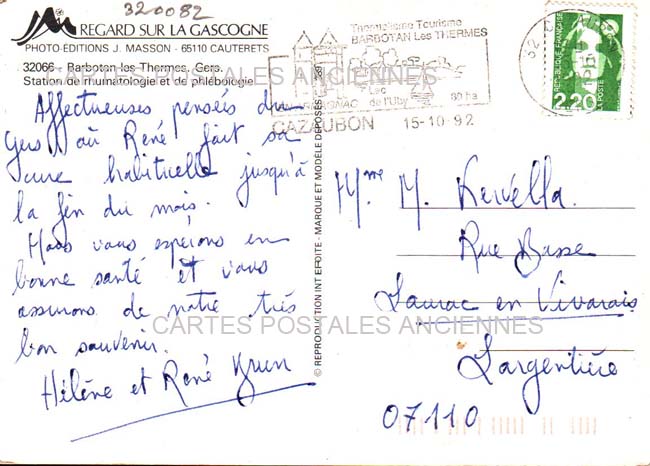 320082
REGARD SUR LA GASCOGNE
PHOTO-ÉDITIONS J. MASSON - 65110 CAUTERETS
32066 - Barbotan-les-Thermes. Gers.
Station de rhumatologie et de phlébologie.
CARTES POSTALES ANCIENNES
Affectueuses pensées du
Gers où René fait sa
cure habituelle jusqu'à
la fin du mois.
Nous vous espérons en
bonne santé et vous
assurons de notre très
bon souvenir.
Hélène et René Brun
© REPRODUCTION INTERDITE - MARQUE ET MODÈLE DÉPOSÉS
Thermalisme Tourisme
BARBOTAN Les THERMES
Lac
de l'Uby
80 ha
CAZAUBON 15-10-92
32
RÉPUBLIQUE FRANÇAISE
2,20
LA POSTE
Mme M. Kervella
Rue Basse
Laurac en Vivarais
Largentière
07110
CARTES POSTALES ANCIENNES